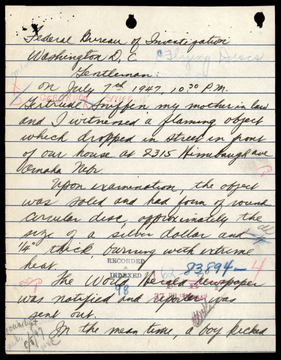 Federal Bureau of Investigation
Washington D.C.
Gentleman:
On July 7th 1947, 10:30 P.M.
Gertrude Sniffin my mother in law
and I witnessed a flaming object
which dropped in street in front
of our house at 2315 ave
Omaha Nebr.
Upon examination, the object
was solid and had form of round
circular disc, approximately the
size of a silver dollar and
1/4" thick, burning with extreme
heat.
RECORDED
INDEXED
83894-4
98
The World Herald Newspaper
was notified and reporter was
sent out.
In the mean time, a boy kicked